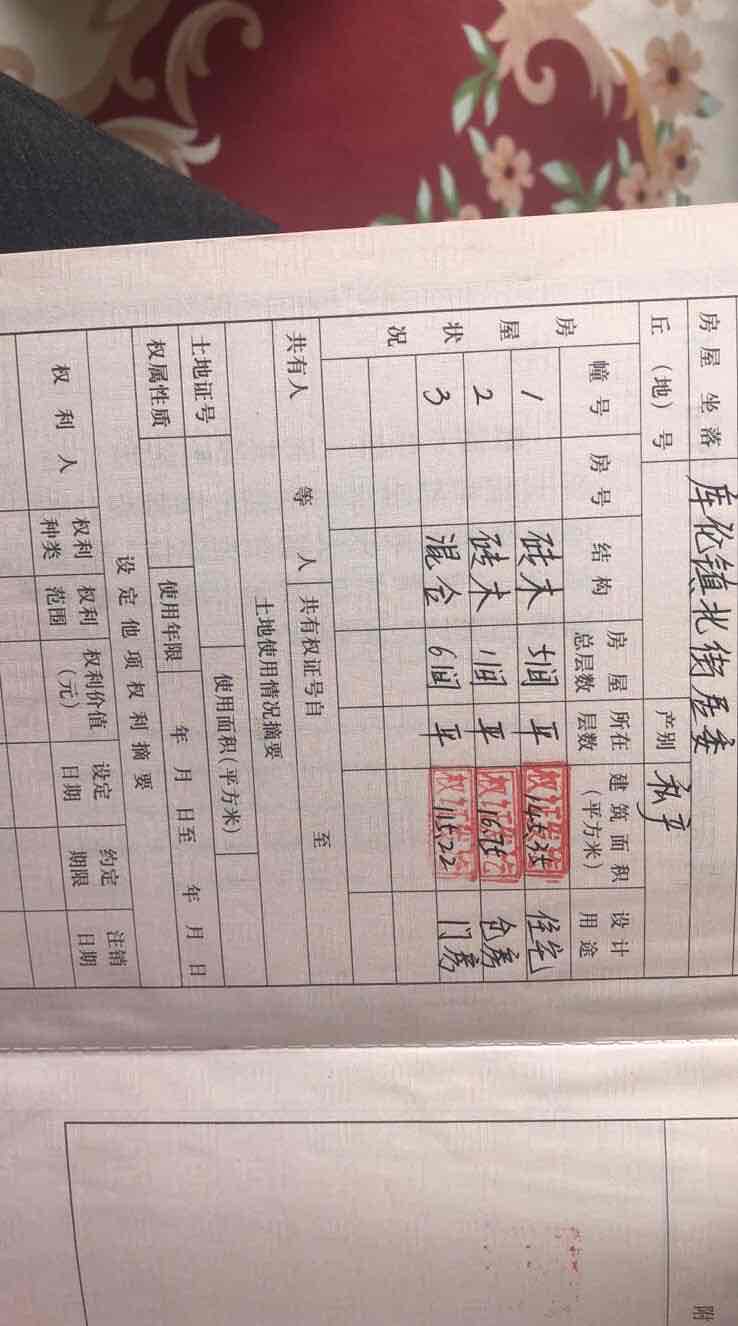 房屋坐落 库伦镇北街居委
丘(地)号 产别 私产
房屋状况
幢号 房号 结构 房屋总层数 所在层数 建筑面积(平方米) 设计用途
1 砖木 5间 平 住宅
2 砖木 1间 平 仓房
3 混合 6间 平 门房
共有人 等 人 共有权证号自 至
土地使用情况摘要
土地证号 使用面积(平方米)
权属性质 使用年限 年 月 日至 年 月 日
设定他项权利摘要
权利人 权利种类 权利范围 权利价值(元) 设定日期 约定期限 注销日期
附